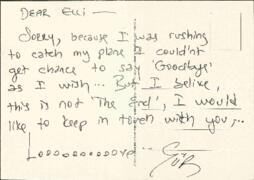 DEAR ELLI —
SORRY, because I was rushing
to catch my plane I could'nt
get chance to say 'Goodbye'
as I wish... But I belive,
this is not 'The End', I would
like to keep in touch with you...
Looooooooove...